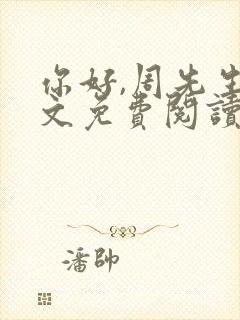 你好,周先生
文免費閱讀
潘帥